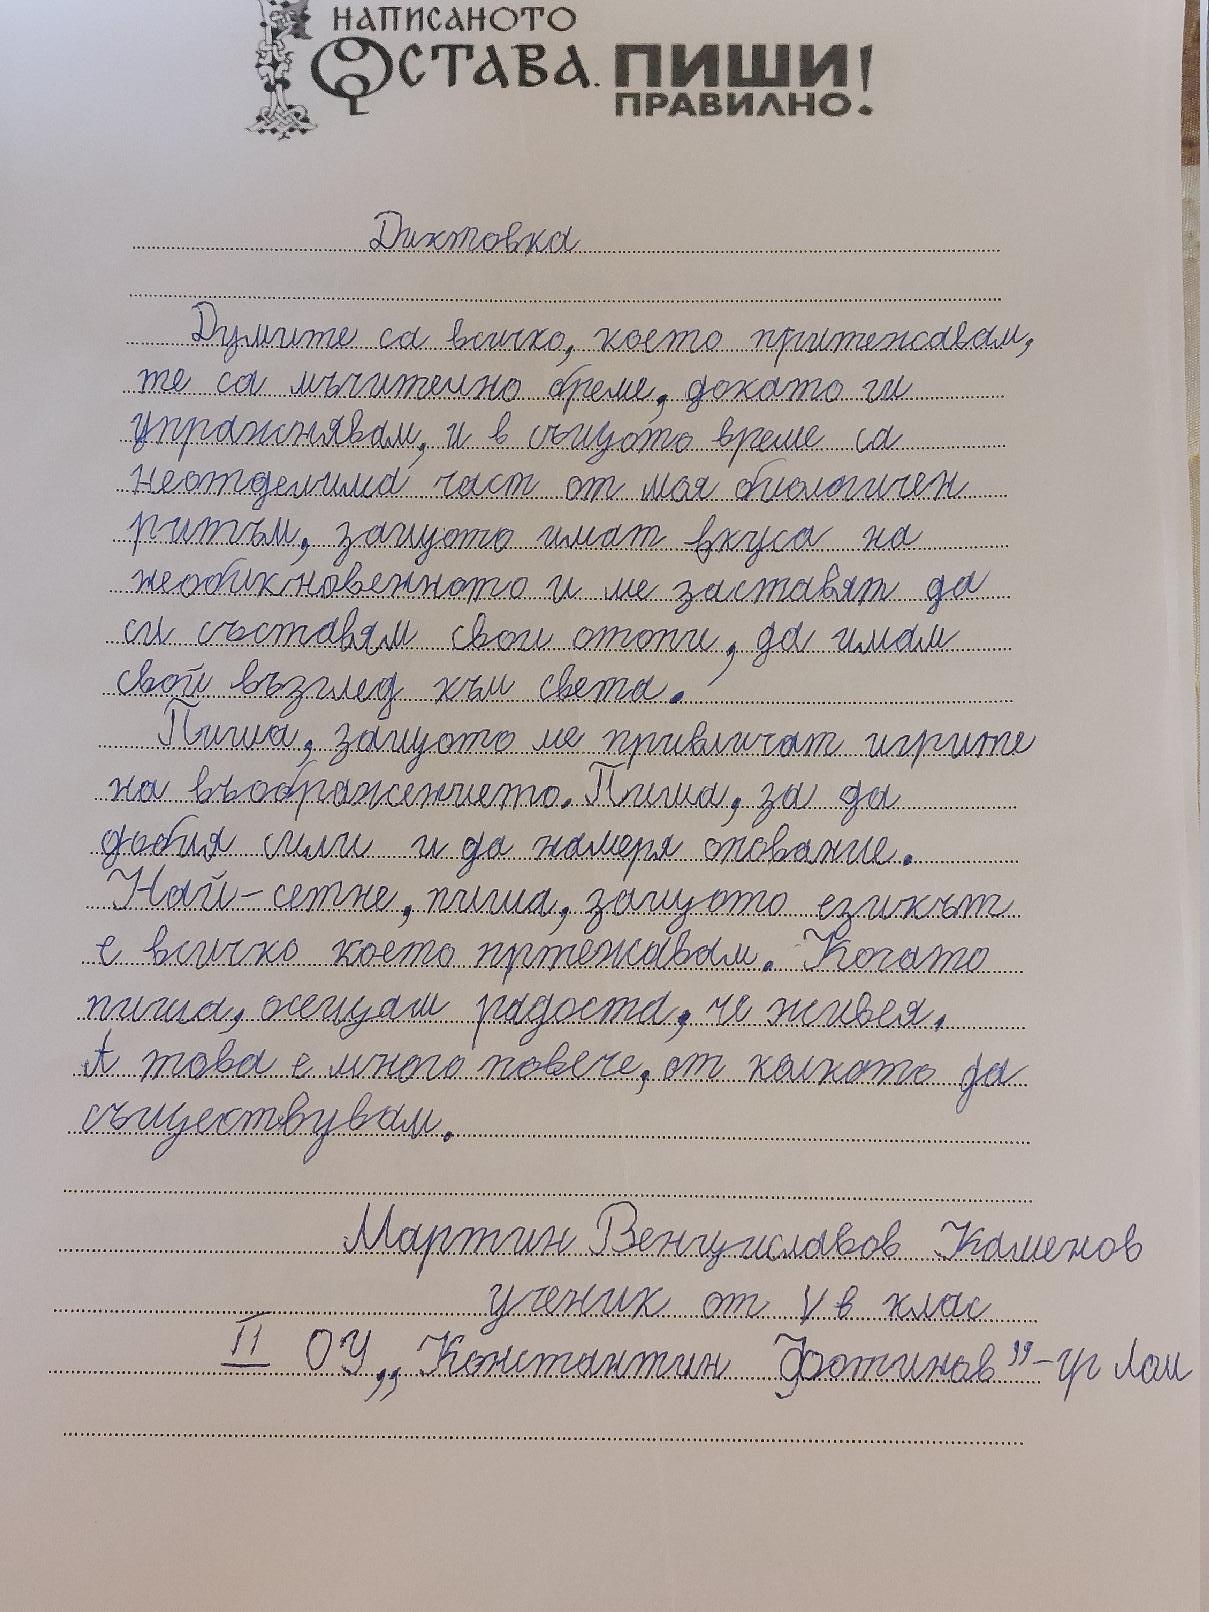 НАПИСАНОТО
ОСТАВА. ПИШИ
ПРАВИЛНО!
Диктовка
Думите са всичко, което притежавам,
те са мъчително бреме, докато ги
упражнявам, и в същото време са
неотделима част от моя биологичен
ритъм, защото имат вкуса на
необикновенното и ме заставят да
си съставям свои опопи, да имам
свой възглед към света.
Пиша, защото ме привличат игрите
на въображението. Пиша, за да
добия сили и да намеря опование.
Най-сетне, пиша, защото езикът
е всичко което пртежавам. Когато
пиша, осещам радоста, че живея.
А това е много повече, от колкото да
съществувам.
Мартин Венциславов Каменов
ученик от V в клас
II ОУ „Константин Фотинов" - гр Лом